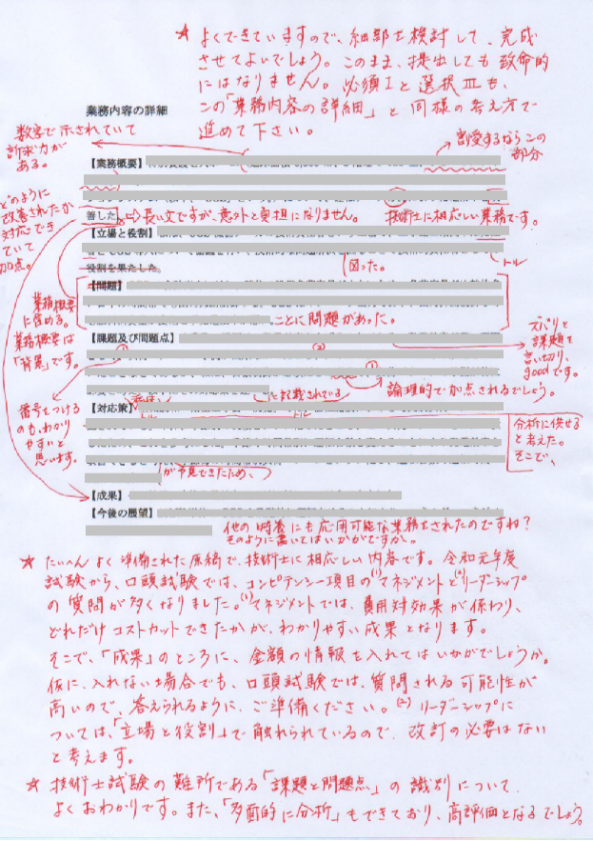 ★ よくできていますので、細部を検討して、完成
させてよいでしょう。このまま、提出しても致命的
にはなりません。必須Ⅰと選択Ⅲも、
この「業務内容の詳細」と同様の考え方で
進めて下さい。
業務内容の詳細
数字で示されていて
訴求力が
ある。
割愛するならこの
部分
【業務概要】
どのように
改善されたか
対応でき
ていて
加点。
善した。
⇨長い文ですが、意外と負担になりません。
技術士に相応しい業務です。
【立場と役割】
トル
役割を果たした。
図った。
【問題】
業務概要
に含める。
業務概要は
「背景」です。
ことに問題があった。
【課題及び問題点】
(2)
ズバリと
課題を
言い切り、
goodです。
(1)
論理的で加点されるでしょう。
に記載されている
番号をつける
のも、わかり
やすいと
思います。
【対応策】
トル
分析に供せる
と考えた。
そこで、
が予見できたため、
【成果】
【今後の展望】
他の時養にも応用可能な業務をされたのですね?
そのように書いてはいかがですか。
★ たいへんよく準備された原稿で、技術士に相応しい内容です。令和元年度
試験から、口頭試験では、コンピテンシー項目の(1)マネジメントと(2)リーダーシップ
の質問が多くなりました。(1)マネジメントでは、費用対効果が係わり、
どれだけコストカットできたかが、わかりやすい成果となります。
そこで、「成果」のところに、金額の情報を入れてはいかがでしょうか。
仮に、入れない場合でも、口頭試験では、質問される可能性が
高いので、答えられるように、ご準備ください。(2)リーダーシップに
ついては、「立場と役割」で触れられているので、改訂の必要はない
と考えます。
★ 技術士試験の難所である「課題と問題点」の識別について、
よくおわかりです。また、「多面的に分析」もできており、高評価となるでしょう。